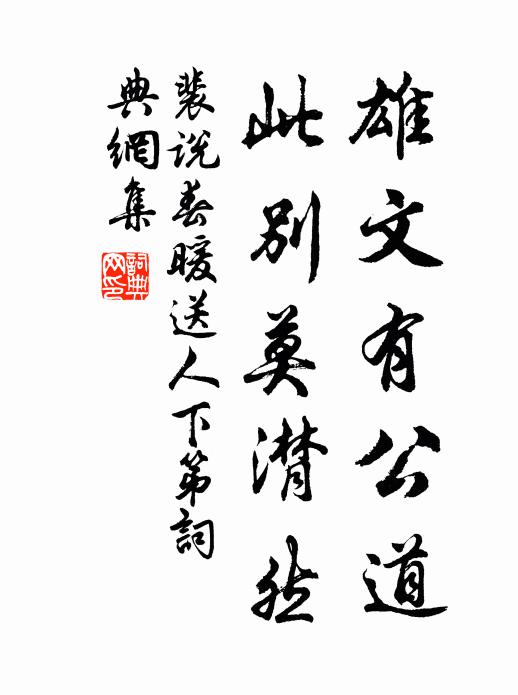 雄文有公道
此別莫潸然
裴説春暖送人下第詞
典網集
詞典网印